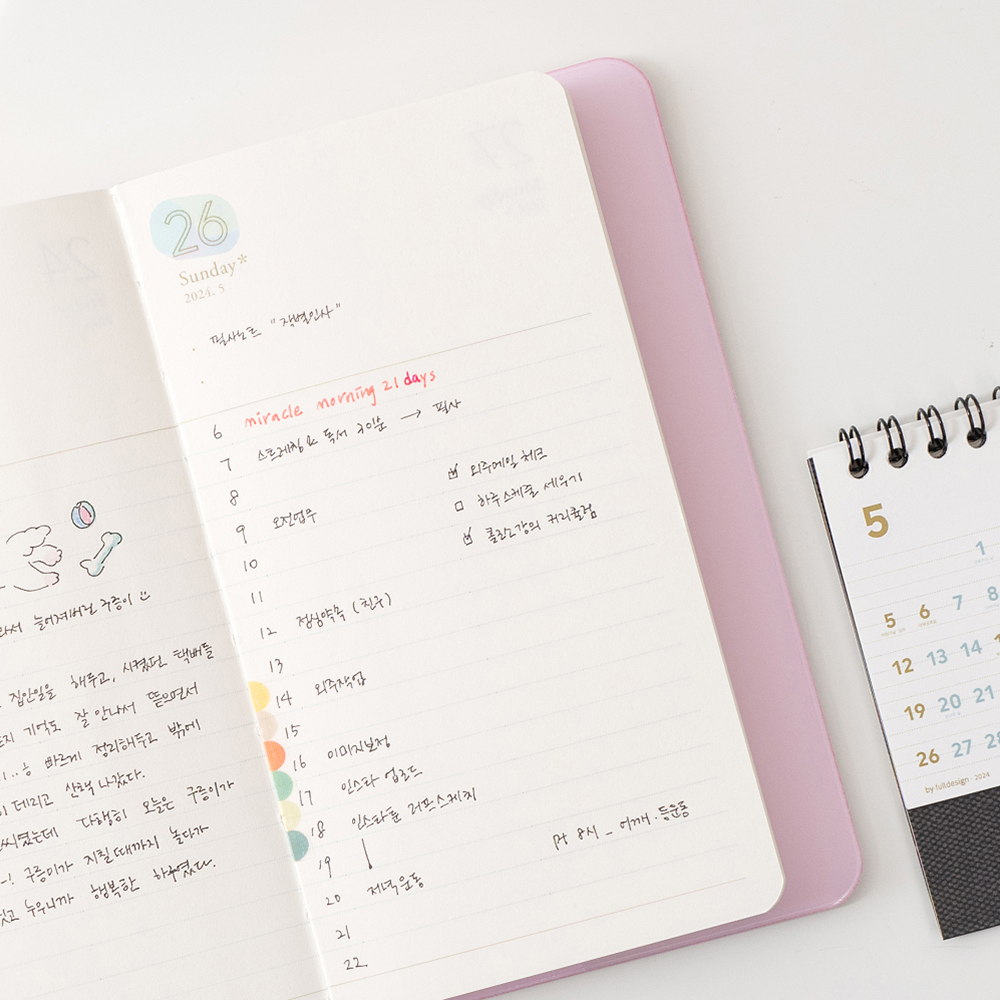 26
Sunday*
2024. 5
· 필사노트 "작별인사"
·
6 miracle morning 21 days
7 스트레칭 & 독서 30분 → 필사
8
☑ 외주메일 체크
9 오전업무
□ 하루스케줄 세우기
10
☑ 콜린스강의 커리큘럼
11
12 점심약속 (친구)
13
14 외주작업
15
16 이미지보정
17 인스타 업로드
18 인스타툰 러프스케치
19
pt 8시 _ 어깨 · 등운동
20 저녁운동
21
22
늘어져버린 구름이
집안일을 해두고, 시켰던 택배들
기억도 잘 안나서 뜯으면서
빠르게 정리해두고 밖에
데리고 산책 나갔다.
다행히 오늘은 구름이가
구름이가 지칠때까지 놀다가
누우니까 행복한 하루였다.
5
1
5 6 7 8
12 13 14
19 20 21
26 27 28
by·fulldesign · 2024